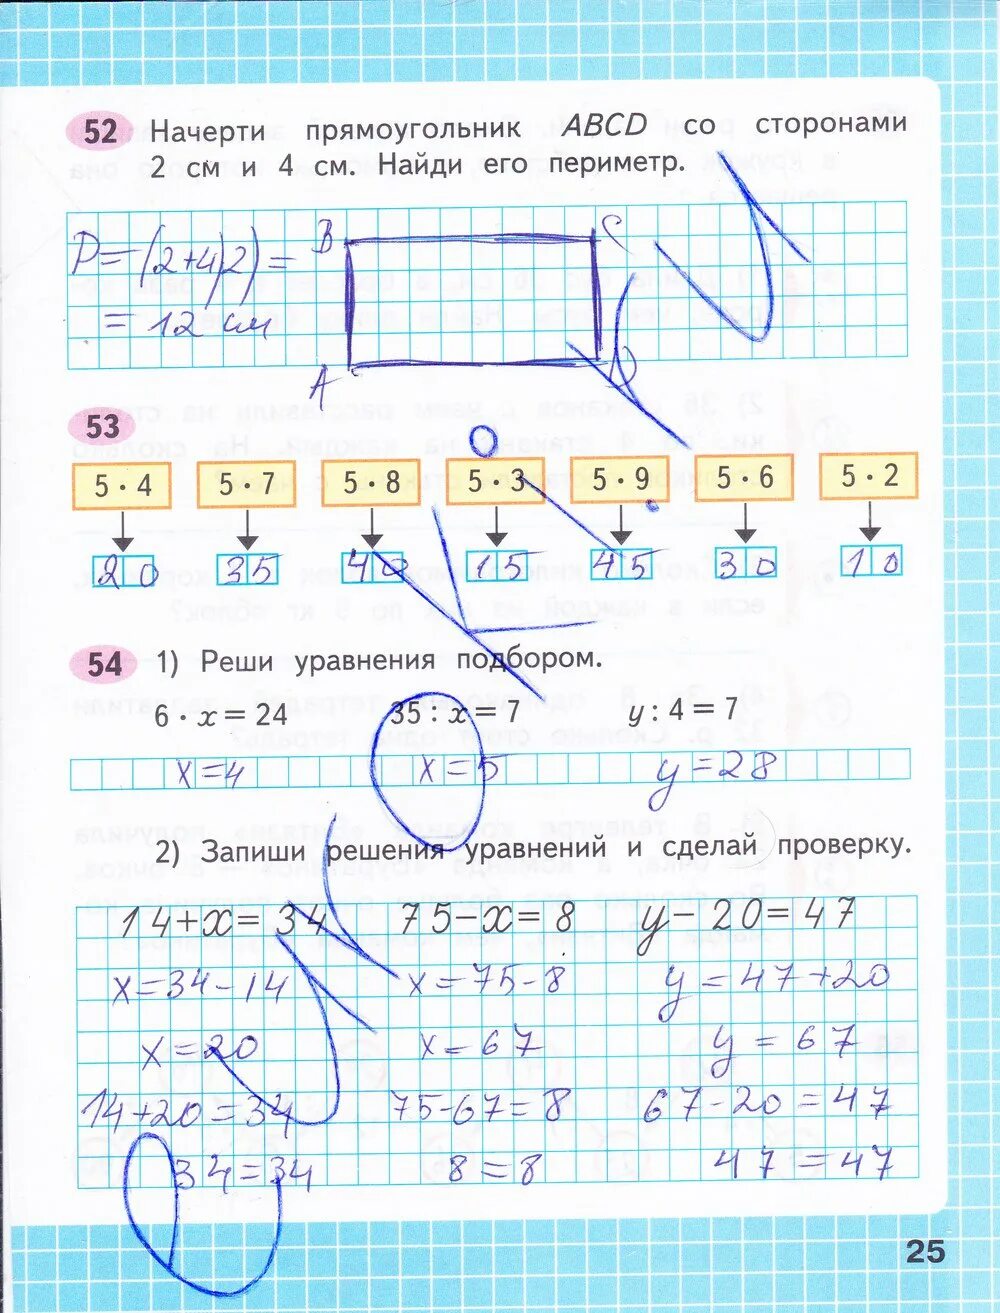 52 Начерти прямоугольник ABCD со сторонами
2 см и 4 см. Найди его периметр.
P=(2+4)2)=
= 12 см
B C
A D
53
5·4 5·7 5·8 5·3 5·9 5·6 5·2
20 35 40 15 45 30 10
54 1) Реши уравнения подбором.
6·x=24 35:x=7 y:4=7
x=4 x=5 y=28
2) Запиши решения уравнений и сделай проверку.
14+x=34 75-x=8 y-20=47
x=34-14 x=75-8 y=47+20
x=20 x=67 y=67
14+20=34 75-67=8 67-20=47
34=34 8=8 47=47
25